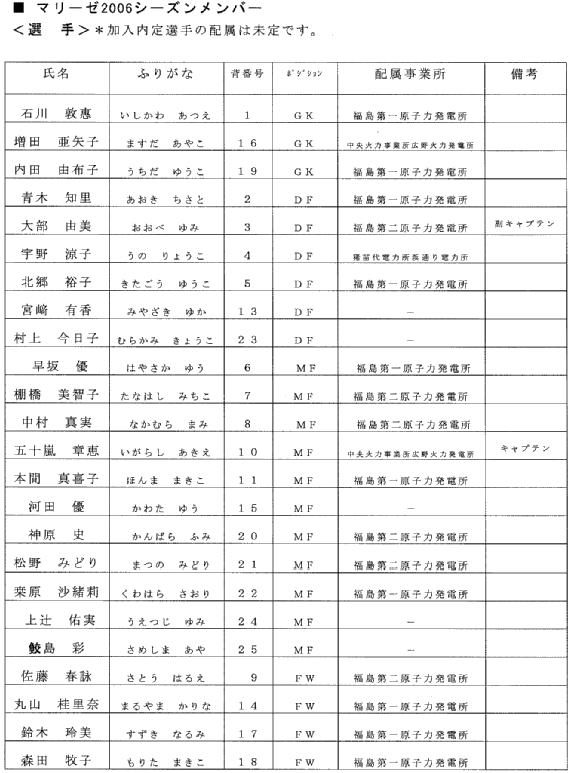 ■ マリーゼ2006シーズンメンバー
＜選　手＞＊加入内定選手の配属は未定です。
氏名 ふりがな 背番号 ﾎﾟｼﾞｼｮﾝ 配属事業所 備考
石川　敦惠 いしかわ　あつえ 1 GK 福島第一原子力発電所
増田　亜矢子 ますだ　あやこ 16 GK 中央火力事業所広野火力発電所
内田　由布子 うちだ　ゆうこ 19 GK 福島第一原子力発電所
青木　知里 あおき　ちさと 2 DF 福島第一原子力発電所
大部　由美 おおべ　ゆみ 3 DF 福島第二原子力発電所 副キャプテン
宇野　涼子 うの　りょうこ 4 DF 猪苗代電力所浜通り電力所
北郷　裕子 きたごう　ゆうこ 5 DF 福島第一原子力発電所
宮﨑　有香 みやざき　ゆか 13 DF －
村上　今日子 むらかみ　きょうこ 23 DF －
早坂　優 はやさか　ゆう 6 MF 福島第一原子力発電所
棚橋　美智子 たなはし　みちこ 7 MF 福島第二原子力発電所
中村　真実 なかむら　まみ 8 MF 福島第二原子力発電所
五十嵐　章恵 いがらし　あきえ 10 MF 中央火力事業所広野火力発電所 キャプテン
本間　真喜子 ほんま　まきこ 11 MF 福島第一原子力発電所
河田　優 かわた　ゆう 15 MF －
神原　史 かんばら　ふみ 20 MF 福島第二原子力発電所
松野　みどり まつの　みどり 21 MF 福島第二原子力発電所
桒原　沙緒莉 くわはら　さおり 22 MF 福島第一原子力発電所
上辻　佑実 うえつじ　ゆみ 24 MF －
鮫島　彩 さめしま　あや 25 MF －
佐藤　春詠 さとう　はるえ 9 FW 福島第二原子力発電所
丸山　桂里奈 まるやま　かりな 14 FW 福島第一原子力発電所
鈴木　玲美 すずき　なるみ 17 FW 福島第一原子力発電所
森田　牧子 もりた　まきこ 18 FW 福島第一原子力発電所